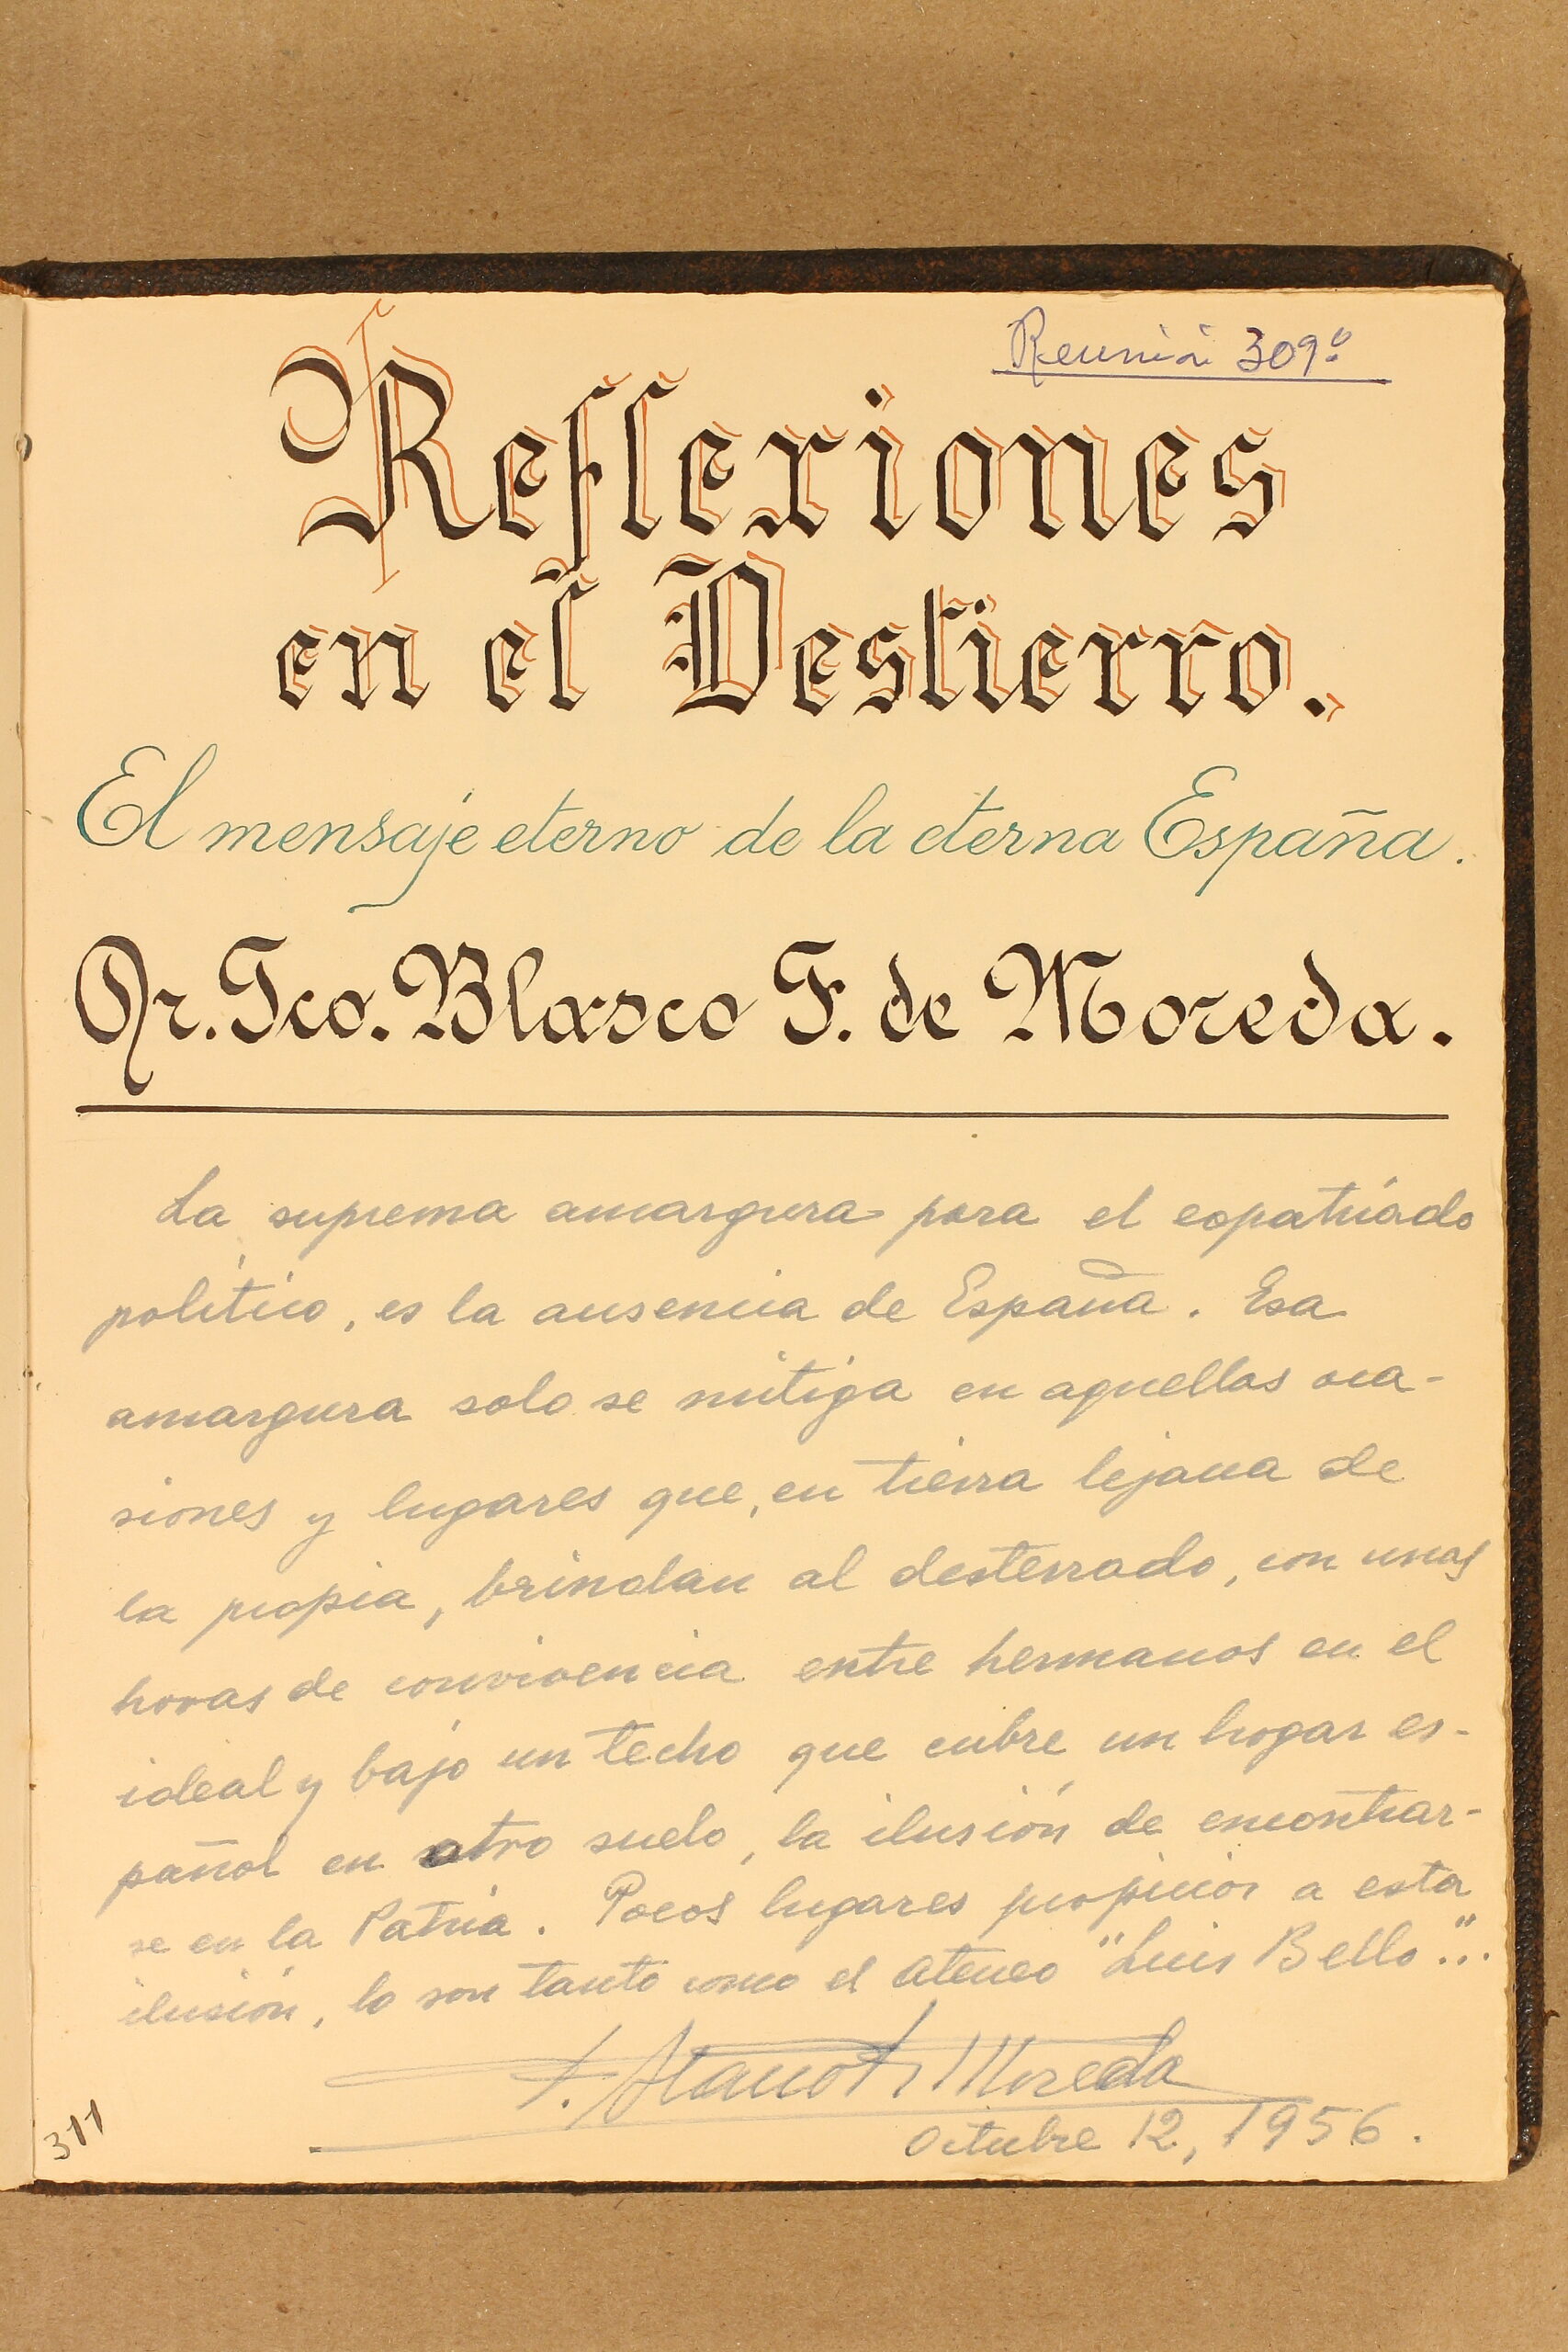 Reunión 309º
Reflexiones
en el Destierro.
El mensaje eterno de la eterna España.
Dr. Fco. Blasco F. de Moreda.
La suprema amargura para el expatriado
político, es la ausencia de España. Esa
amargura solo se mitiga en aquellas oca-
siones y lugares que, en tierra lejana de
la propia, brindan al desterrado, con unas
horas de convivencia entre hermanos en el
ideal y bajo un techo que cubre un hogar es-
pañol en otro suelo, la ilusión de encontrar-
se en la Patria. Pocos lugares propicios a esta
ilusión, lo son tanto como el Ateneo "Luis Bello"...
Moreda
Octubre 12, 1956.
311